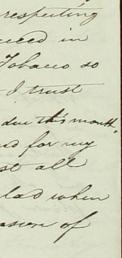 respecting
in
Tobacco so
I trust
due this month,
for my
all
glad when
of